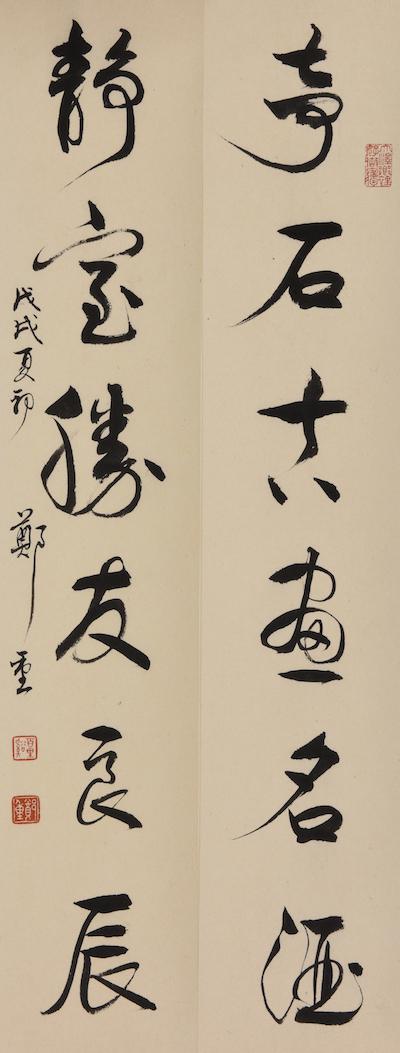 奇石古畫名酒
靜室勝友良辰
戊戌夏初 鄭重
鄭重